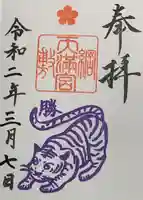 奉拝
綱敷
天満宮
勝
令和二年三月七日